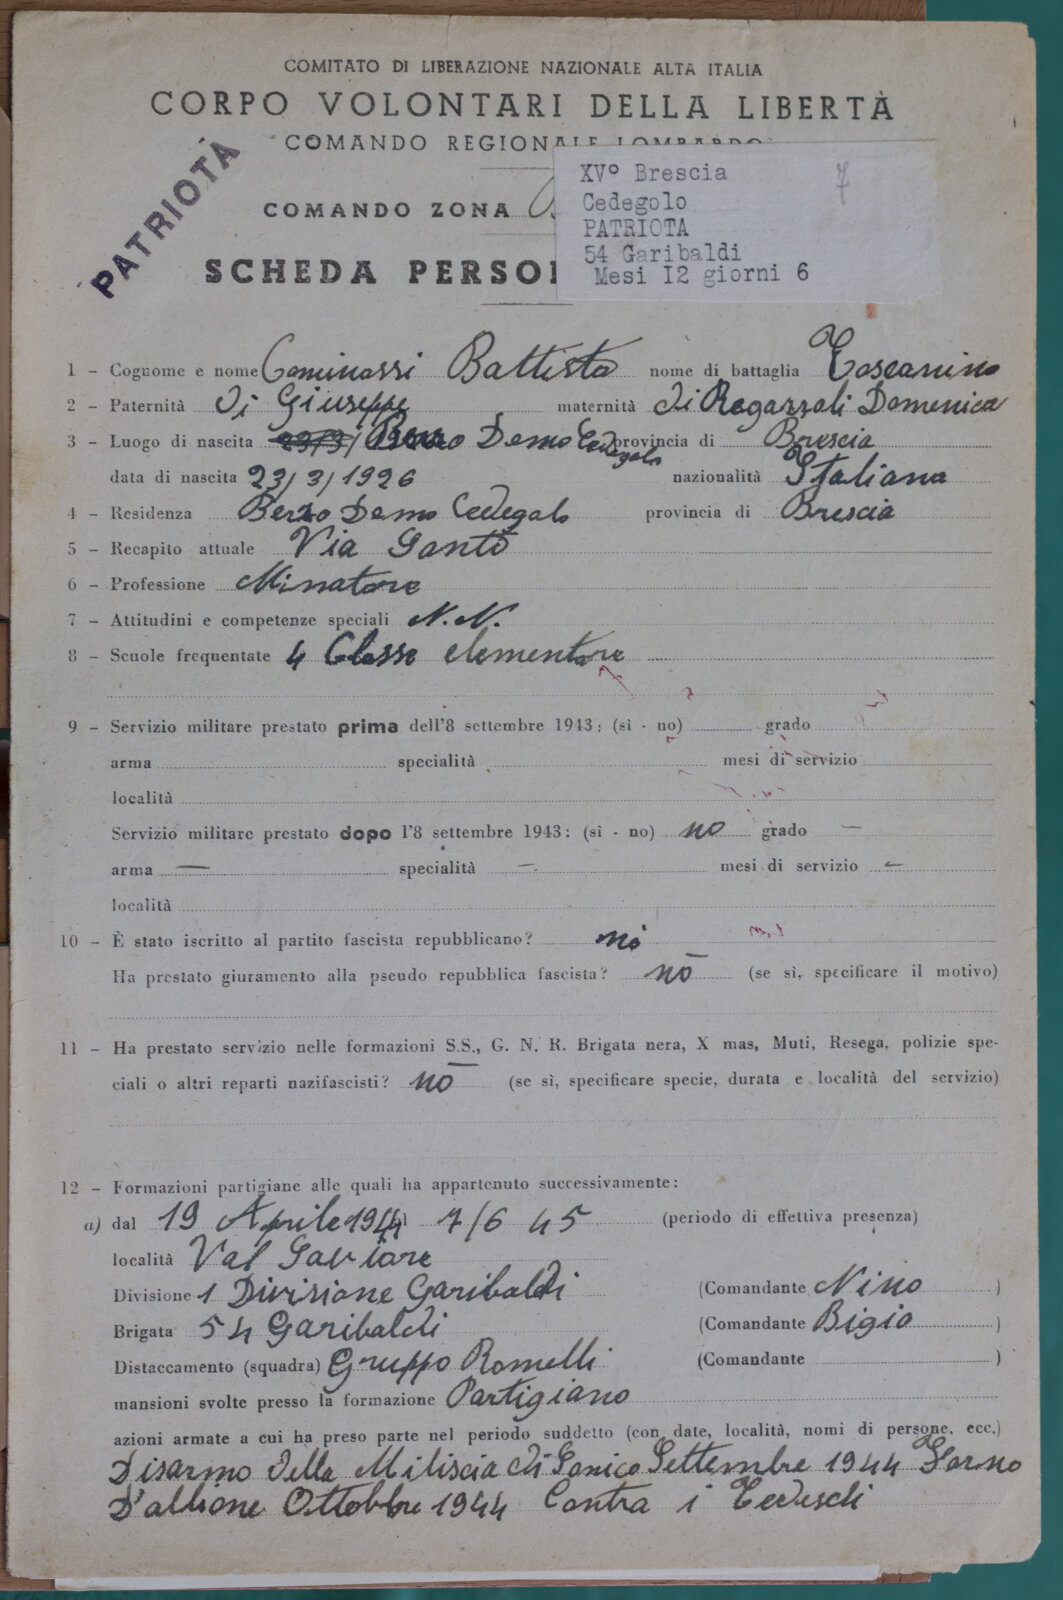 COMITATO DI LIBERAZIONE NAZIONALE ALTA ITALIA
CORPO VOLONTARI DELLA LIBERTÀ
COMANDO REGIONALE LOMBARDO
PATRIOTÀ
COMANDO ZONA
SCHEDA PERSO
XV° Brescia 7
Cedegolo
PATRIOTA
54 Garibaldi
Mesi I2 giorni 6
1 - Cognome e nome Cominassi Battista nome di battaglia Toscanino
2 - Paternità di Giuseppe maternità di Ragazzoli Domenica
3 - Luogo di nascita 23/3/ Berzo Demo Cedegolo provincia di Brescia
data di nascita 23/3/1926 nazionalità Italiana
4 - Residenza Berzo Demo Cedegolo provincia di Brescia
5 - Recapito attuale Via
6 - Professione Minatore
7 - Attitudini e competenze speciali N.N.
8 - Scuole frequentate 4 Classe elementare
9 - Servizio militare prestato prima dell'8 settembre 1943: (sì - no) grado
arma specialità mesi di servizio
località
Servizio militare prestato dopo l'8 settembre 1943: (sì - no) no grado —
arma — specialità — mesi di servizio —
località
10 - È stato iscritto al partito fascista repubblicano? no
Ha prestato giuramento alla pseudo repubblica fascista? no (se sì, specificare il motivo)
11 - Ha prestato servizio nelle formazioni S.S., G. N. R. Brigata nera, X mas, Muti, Resega, polizie spe-
ciali o altri reparti nazifascisti? no (se sì, specificare specie, durata e località del servizio)
12 - Formazioni partigiane alle quali ha appartenuto successivamente:
a) dal 19 Aprile 1944 al 7/6 45 (periodo di effettiva presenza)
località Val Saviore
Divisione 1 Divisione Garibaldi (Comandante Nino )
Brigata 54 Garibaldi (Comandante Bigio )
Distaccamento (squadra) Gruppo Romelli (Comandante )
mansioni svolte presso la formazione Partigiano
azioni armate a cui ha preso parte nel periodo suddetto (con date, località, nomi di persone, ecc.)
Disarmo della Miliscia di Sonico Settembre 1944 Forno
D'allione Ottobbre 1944 Contra i Tedeschi